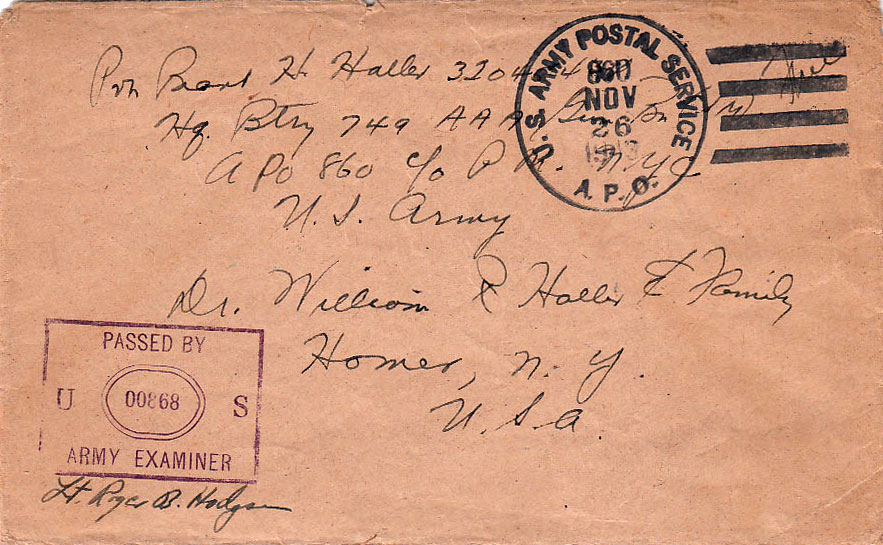 Pvt H. Haller
Hq. Btry 749 AAA Gun Bn
APO 860 c/o P.M. N.Y.C
U.S. Army
U.S. ARMY POSTAL SERVICE
NOV
26
A.P.O.
Dr. William R Haller & Family
Homer, N.Y.
U.S.A.
PASSED BY
U 00868 S
ARMY EXAMINER
Lt. Roger B. Hodgson